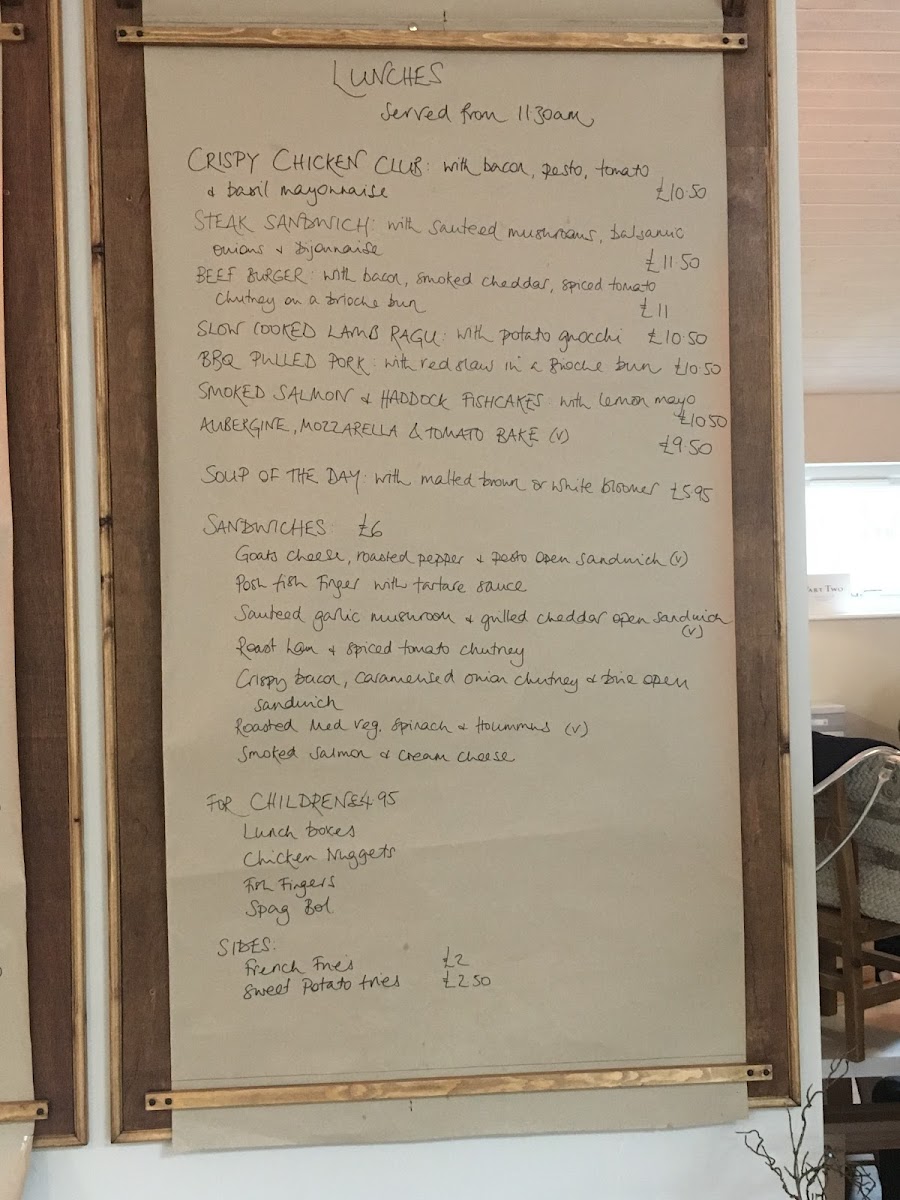 LUNCHES
Served from 11.30am
CRISPY CHICKEN CLUB: with bacon, pesto, tomato
& basil mayonnaise £10.50
STEAK SANDWICH: with sauteed mushrooms, balsamic
onions & Dijonnaise £11.50
BEEF BURGER: with bacon, smoked cheddar, spiced tomato
chutney on a brioche bun £11
SLOW COOKED LAMB RAGU: with potato gnocchi £10.50
BBQ PULLED PORK: with red slaw in a Brioche bun £10.50
SMOKED SALMON & HADDOCK FISHCAKES: with lemon mayo
£10.50
AUBERGINE, MOZZARELLA & TOMATO BAKE (V) £9.50
SOUP OF THE DAY: with malted brown or white bloomer £5.95
SANDWICHES: £6
Goats cheese, roasted pepper & pesto open sandwich (v)
Posh fish finger with tartare sauce
Sauteed garlic mushroom & grilled cheddar open sandwich
(v)
Roast ham & spiced tomato chutney
Crispy bacon, caramelised onion chutney & brie open
sandwich
Roasted Med veg, spinach & Hoummus (v)
Smoked salmon & cream cheese
FOR CHILDREN £4.95
Lunch boxes
Chicken Nuggets
Fish Fingers
Spag Bol.
SIDES:
French Fries £2
Sweet Potato fries £2.50
PART TWO